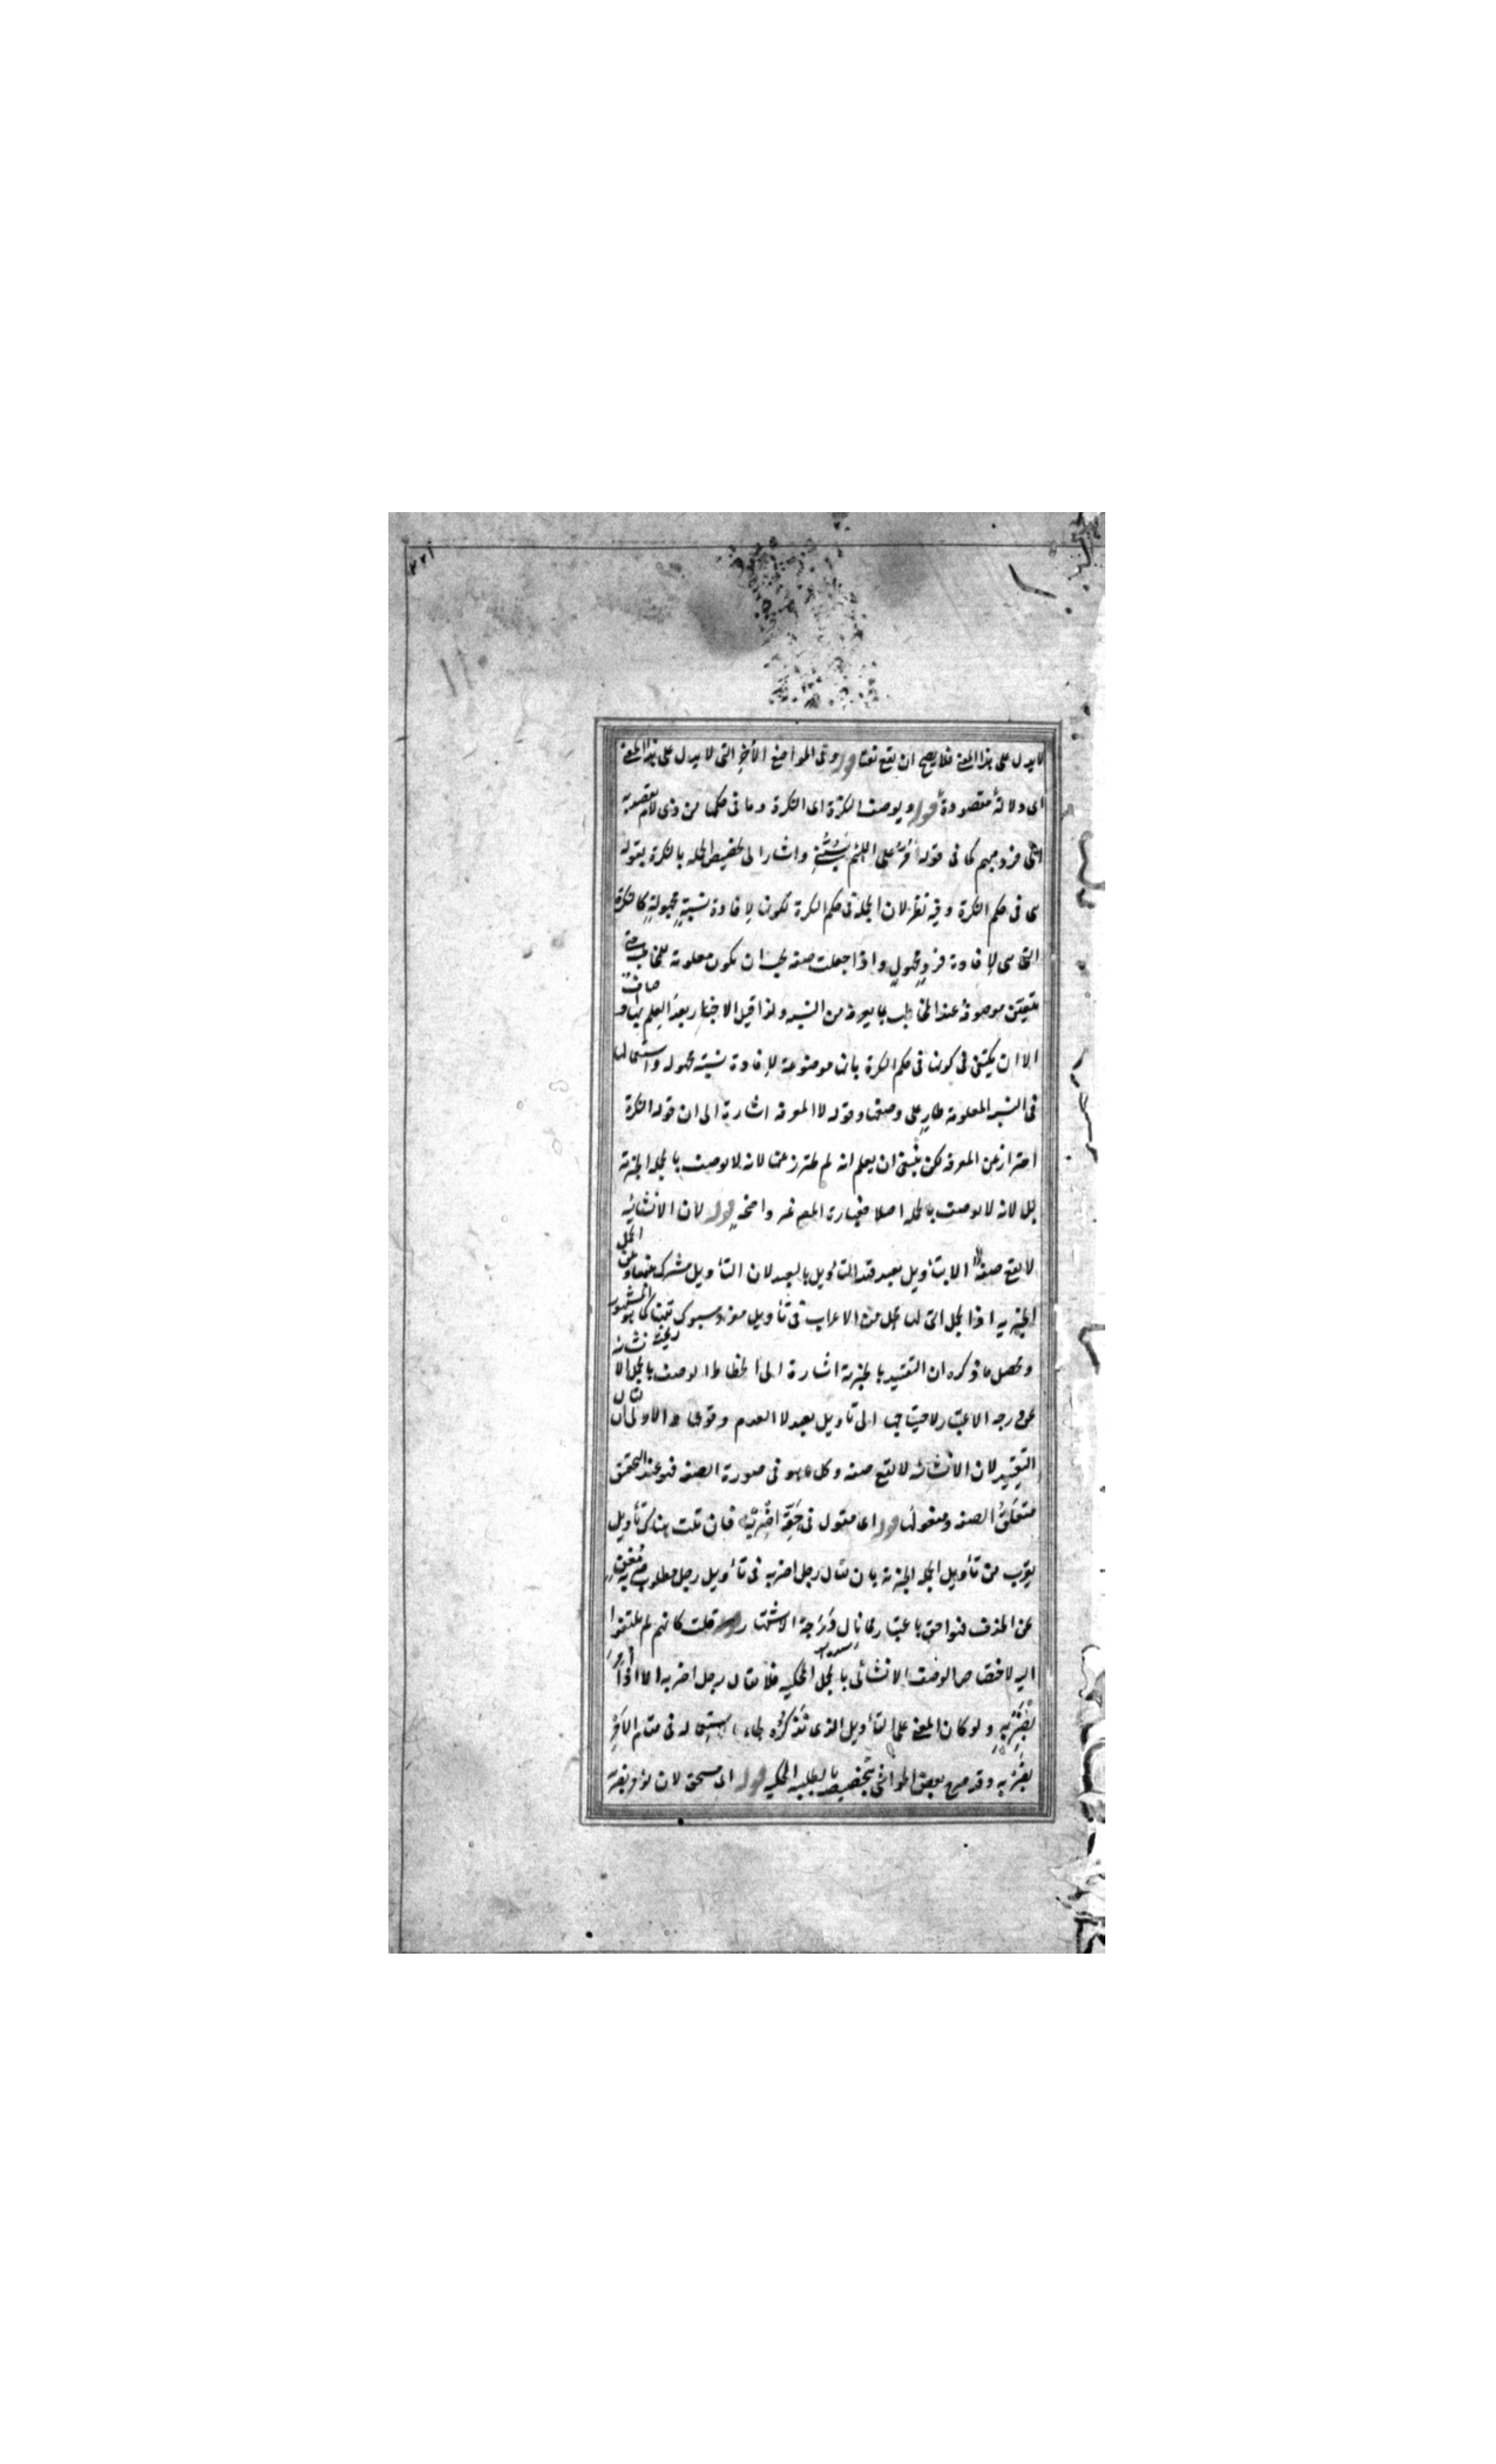 لا يدل على هذا المعنى فلا يصح ان يقع نعتا قوله وفى المواضع الأخر التى لا يدل على هذا المعنى
اى دلالة مقصودة قوله ويوصف النكرة اى النكرة وما فى حكمها من ذى لام يقصد به
الى فرد مبهم كما فى قوله امر على اللئيم يسبنى واشار الى تخصيص الجملة بالنكرة بقوله
هى فى حكم النكرة وفيه نظر لان الجملة فى حكم النكرة تكون لافادة نسبة مجهولة كالنكرة
التى هى لافادة فرد مجهول واذا جعلت صفة يجب ان تكون معلومة للمخاطب حتى
يتعين موصوفه عند المخاطب بما يعرفه من النسبة ولذا قيل الاخبار بعد العلم بها اوصاف
الا ان يكتفى فى كونها فى حكم النكرة بانها موضوعة لافادة نسبة مجهولة واستعمالها
فى النسبة المعلومة طار على وضعها وقوله لا المعرفة اشارة الى ان قوله النكرة
احتراز عن المعرفة لكن ينبغى ان يعلم انه لم يحترز عنها لانه لا يوصف بالجملة الخبرية
بل لانه لا يوصف بالجملة اصلا فعبارة المص غير واضحة قوله لان الانشائية
لا تقع صفة الا بتأويل بعيد قيد التأويل بالبعيد لان التأويل مشترك بينها وبين الجمل
الخبرية اذ الجمل التى لها محل من الاعراب فى تأويل مفرد مسبوك منها كما هو المشهور
ومحصل ما ذكره ان التقييد بالخبرية اشارة الى انحطاط الوصف بالجمل الانشائية
عن درجة الاعتبار لاحتياجها الى تأويل بعيد لا لعدم وقوعها والاولى ان يقال
التقييد لان الانشائية لا تقع صفة وكل ما هو فى صورة الصفة فهو عند التحقيق
متعلق الصفة ومعمولها قوله اى مقول فى حقه اضربه فان قلت هناك تأويل
يقرب من تأويل الجملة الخبرية بان يقال رجل اضربه فى تأويل رجل مطلوب ضربه مغن
عن الحذف فهو احق باعتبار كما نال درجة الاشتهار قلت كانهم لم يلتفتوا
اليه لاختصاص الوصف الانشائى بالجمل المحكية فلا يقال رجل اضربه الا اذا امر
بضربه ولو كان المعنى على التأويل الذى تذكره لجاء استعماله فى مقام الامر
بضربه وقد صرح بعض الحواشى بتخصيصه بالطلبية المحكية قوله اى مستحق لان يؤمر بضربه